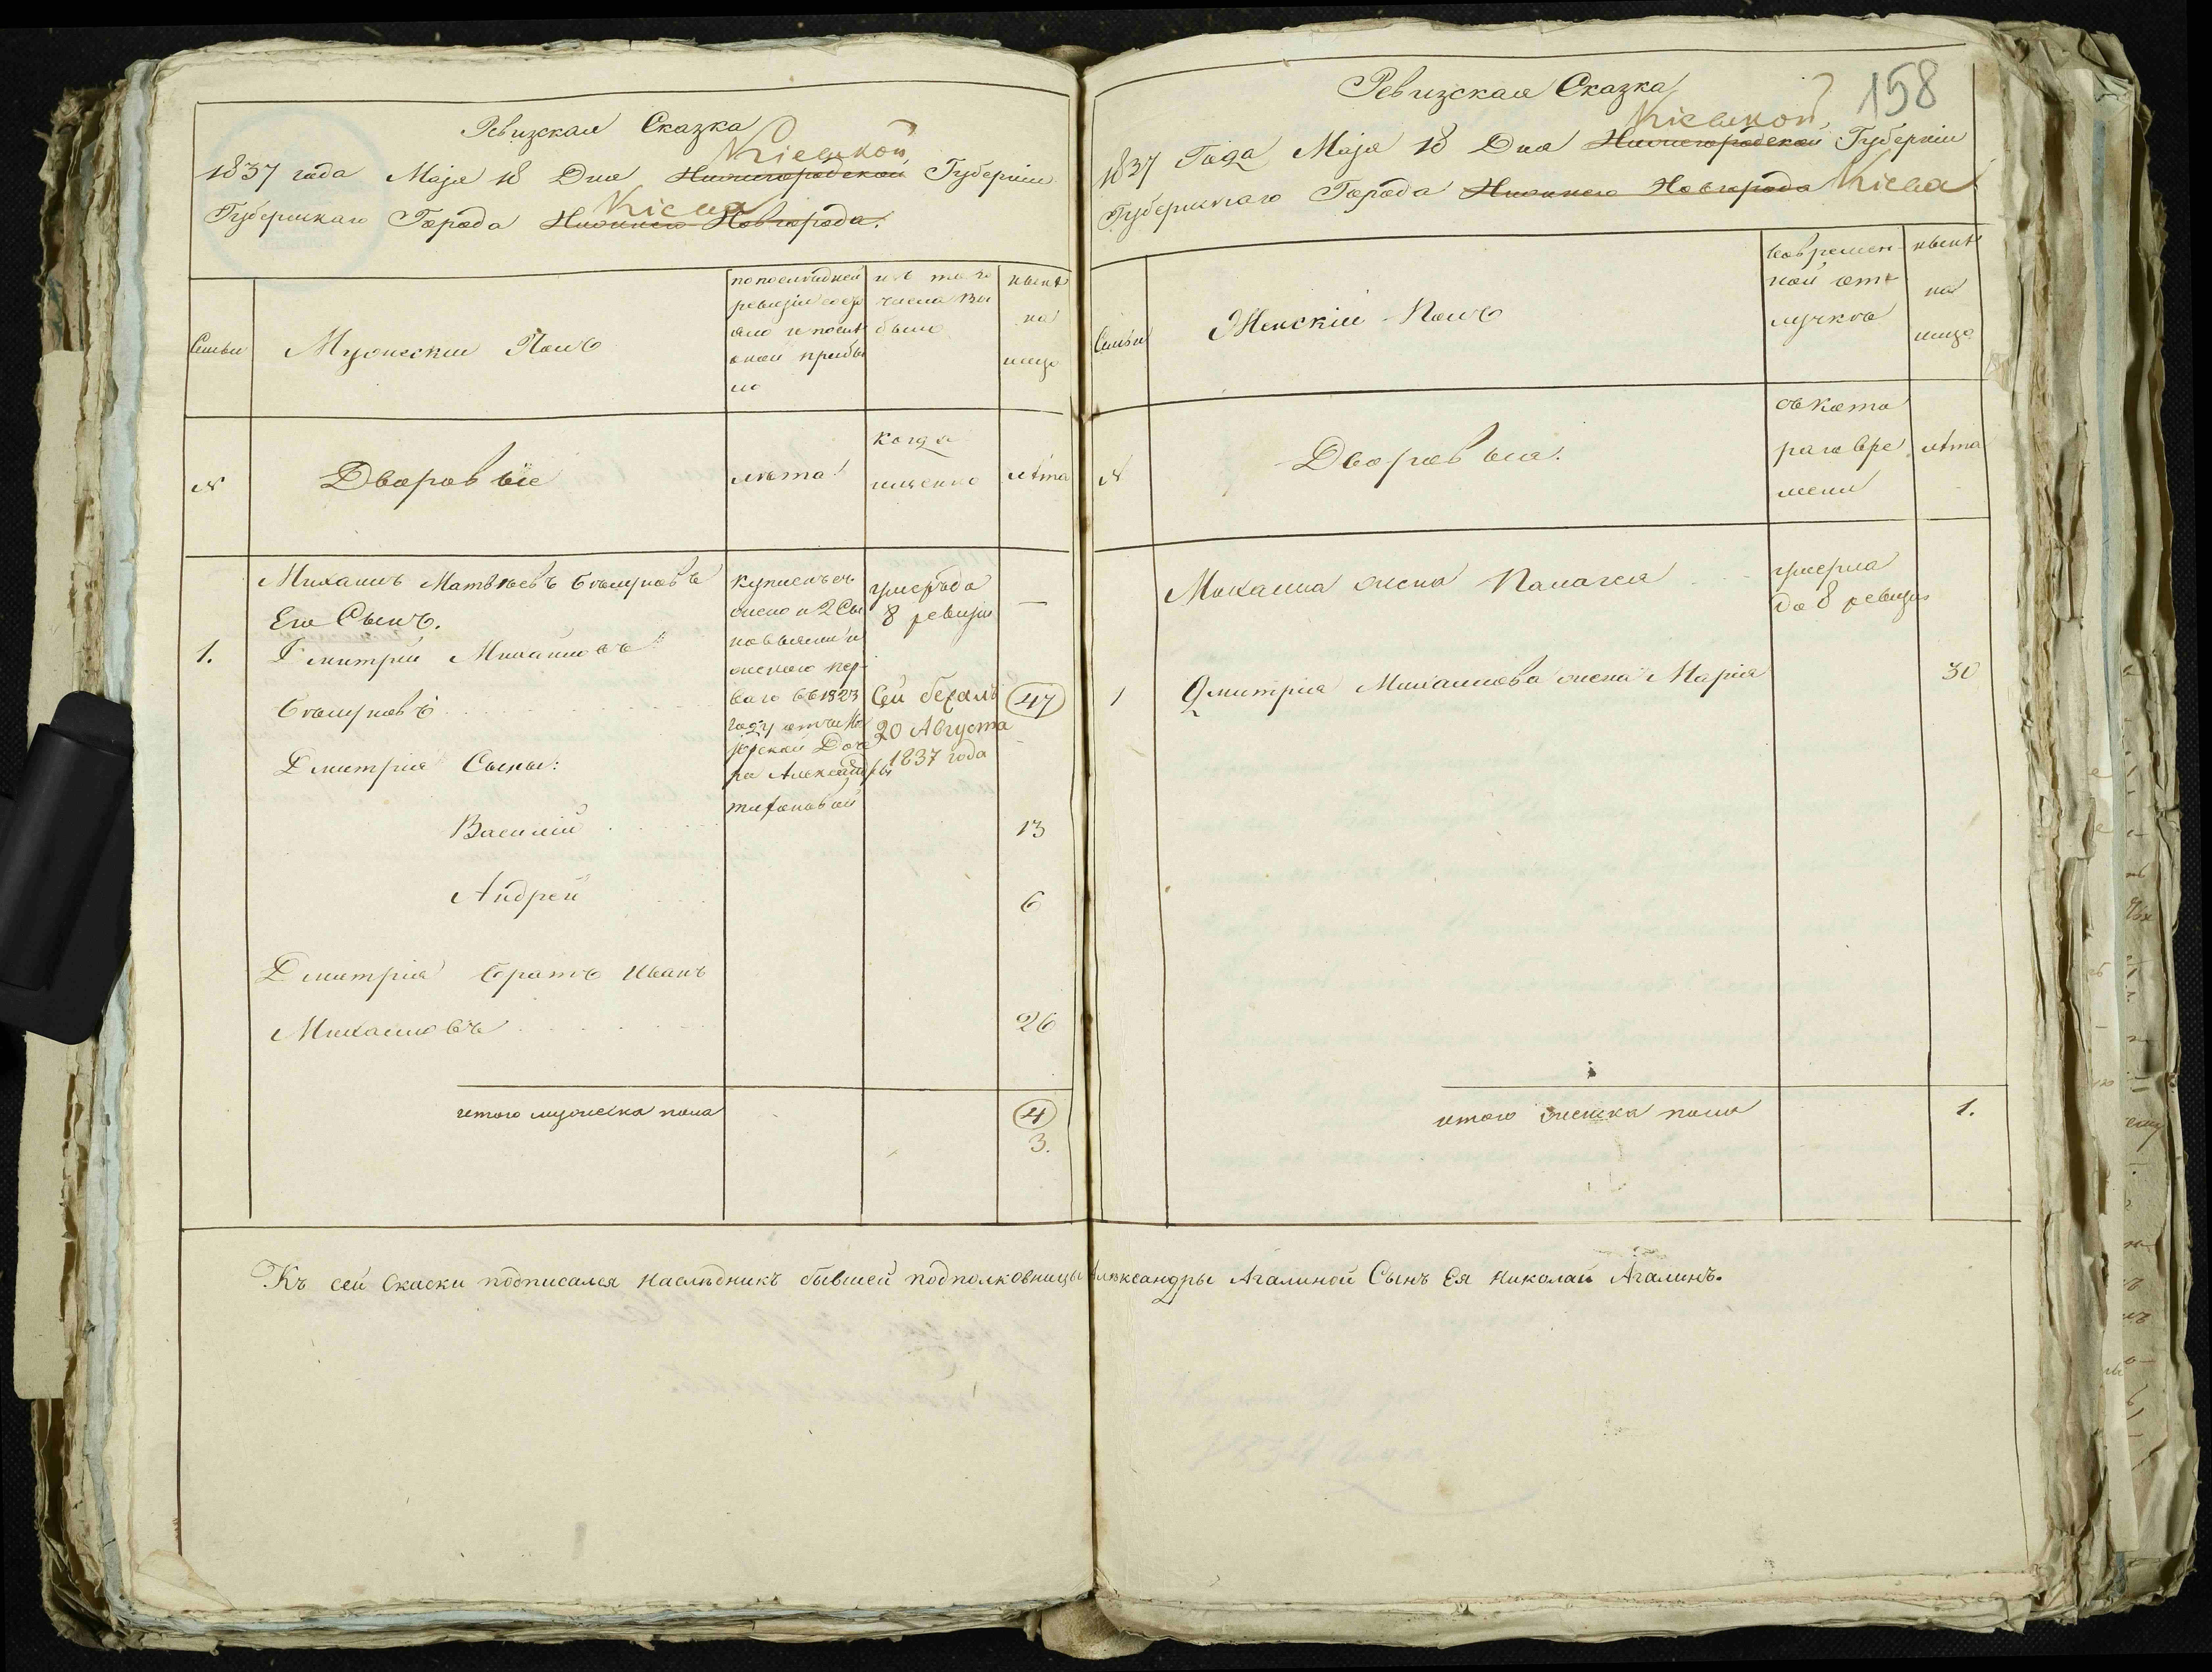 Ревизская Сказка
Кіевской
1837 года Маія 18 Дня Нижегородской Губерніи
Кіева
Губернскаго Города Нижнего Новгорода.
Семьи
Мужескій Полъ
по последней
ревизіи состо
яло и после
оной прибы
ло
изъ того
числа вы
было
ныне
на
лицо
№
Дворовые
лѣта
когда
имѣнно
лѣта
1.
Михаилъ Матвѣевъ
Его Сынъ.
Дмитрій Михайловъ
Дмитрія Сыны:
Василій
Андрей
Дмитрія братъ Иванъ
Михайловъ
купленъ съ
женою и 2 Сы
новьями и
женою пер
ваго въ 1823
году от
Доче
ри Александры
умеръ до
8 ревизіи
Сей бежалъ
20 Августа
1837 года
—
47
13
6
26
итого мужеска пола
4
3.
158
Ревизская Сказка
Кіевской
1837 Года Маія 18 Дня Нижегородской Губерніи
Губернскаго Города Нижнего Новгорода Кіева
Семьи
Женскій Полъ
во времен
ной отл
лучкѣ
ныне
на
лицо
№
Дворовыя.
съ кото
раго вре
мени
лѣта
Михаила жена Палагея
умерла
до 8 ревизіи
1
Дмитрія Михайлова жена Марія
30
итого женска пола
1.
Къ сей скаски подписался наследникъ бывшей подполковницы Александры Агалиной Сынъ Ея Николай Агалинъ.